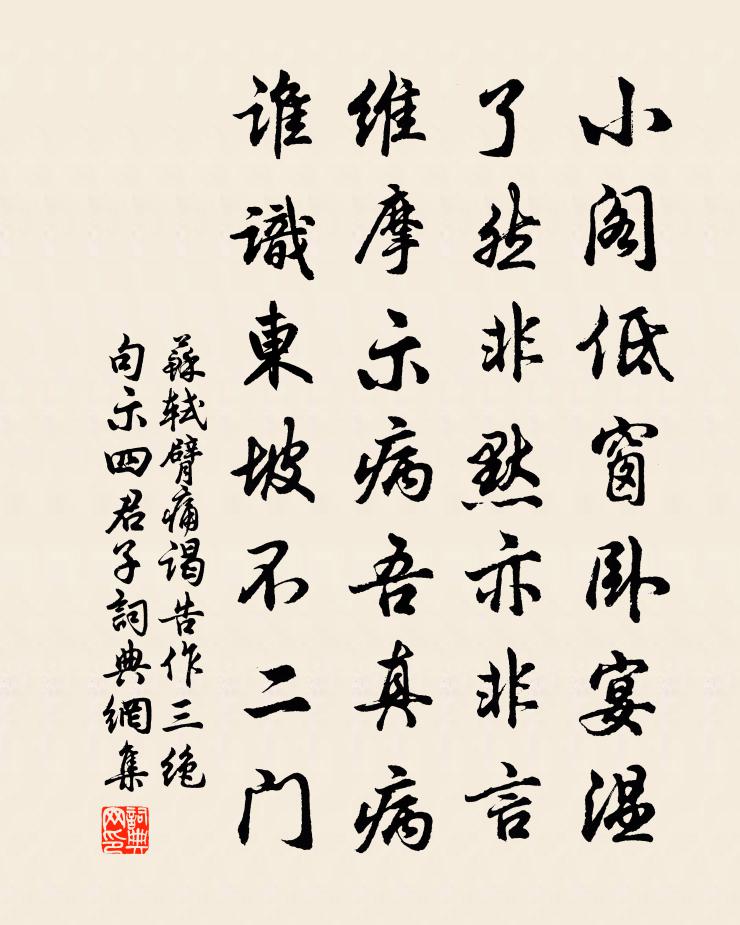 小阁低窗卧宴温
了然非默亦非言
维摩示病吾真病
谁識東坡不二门
蘇軾臂痛谒告作三绝
句示四君子詞典網集
詞典
网印